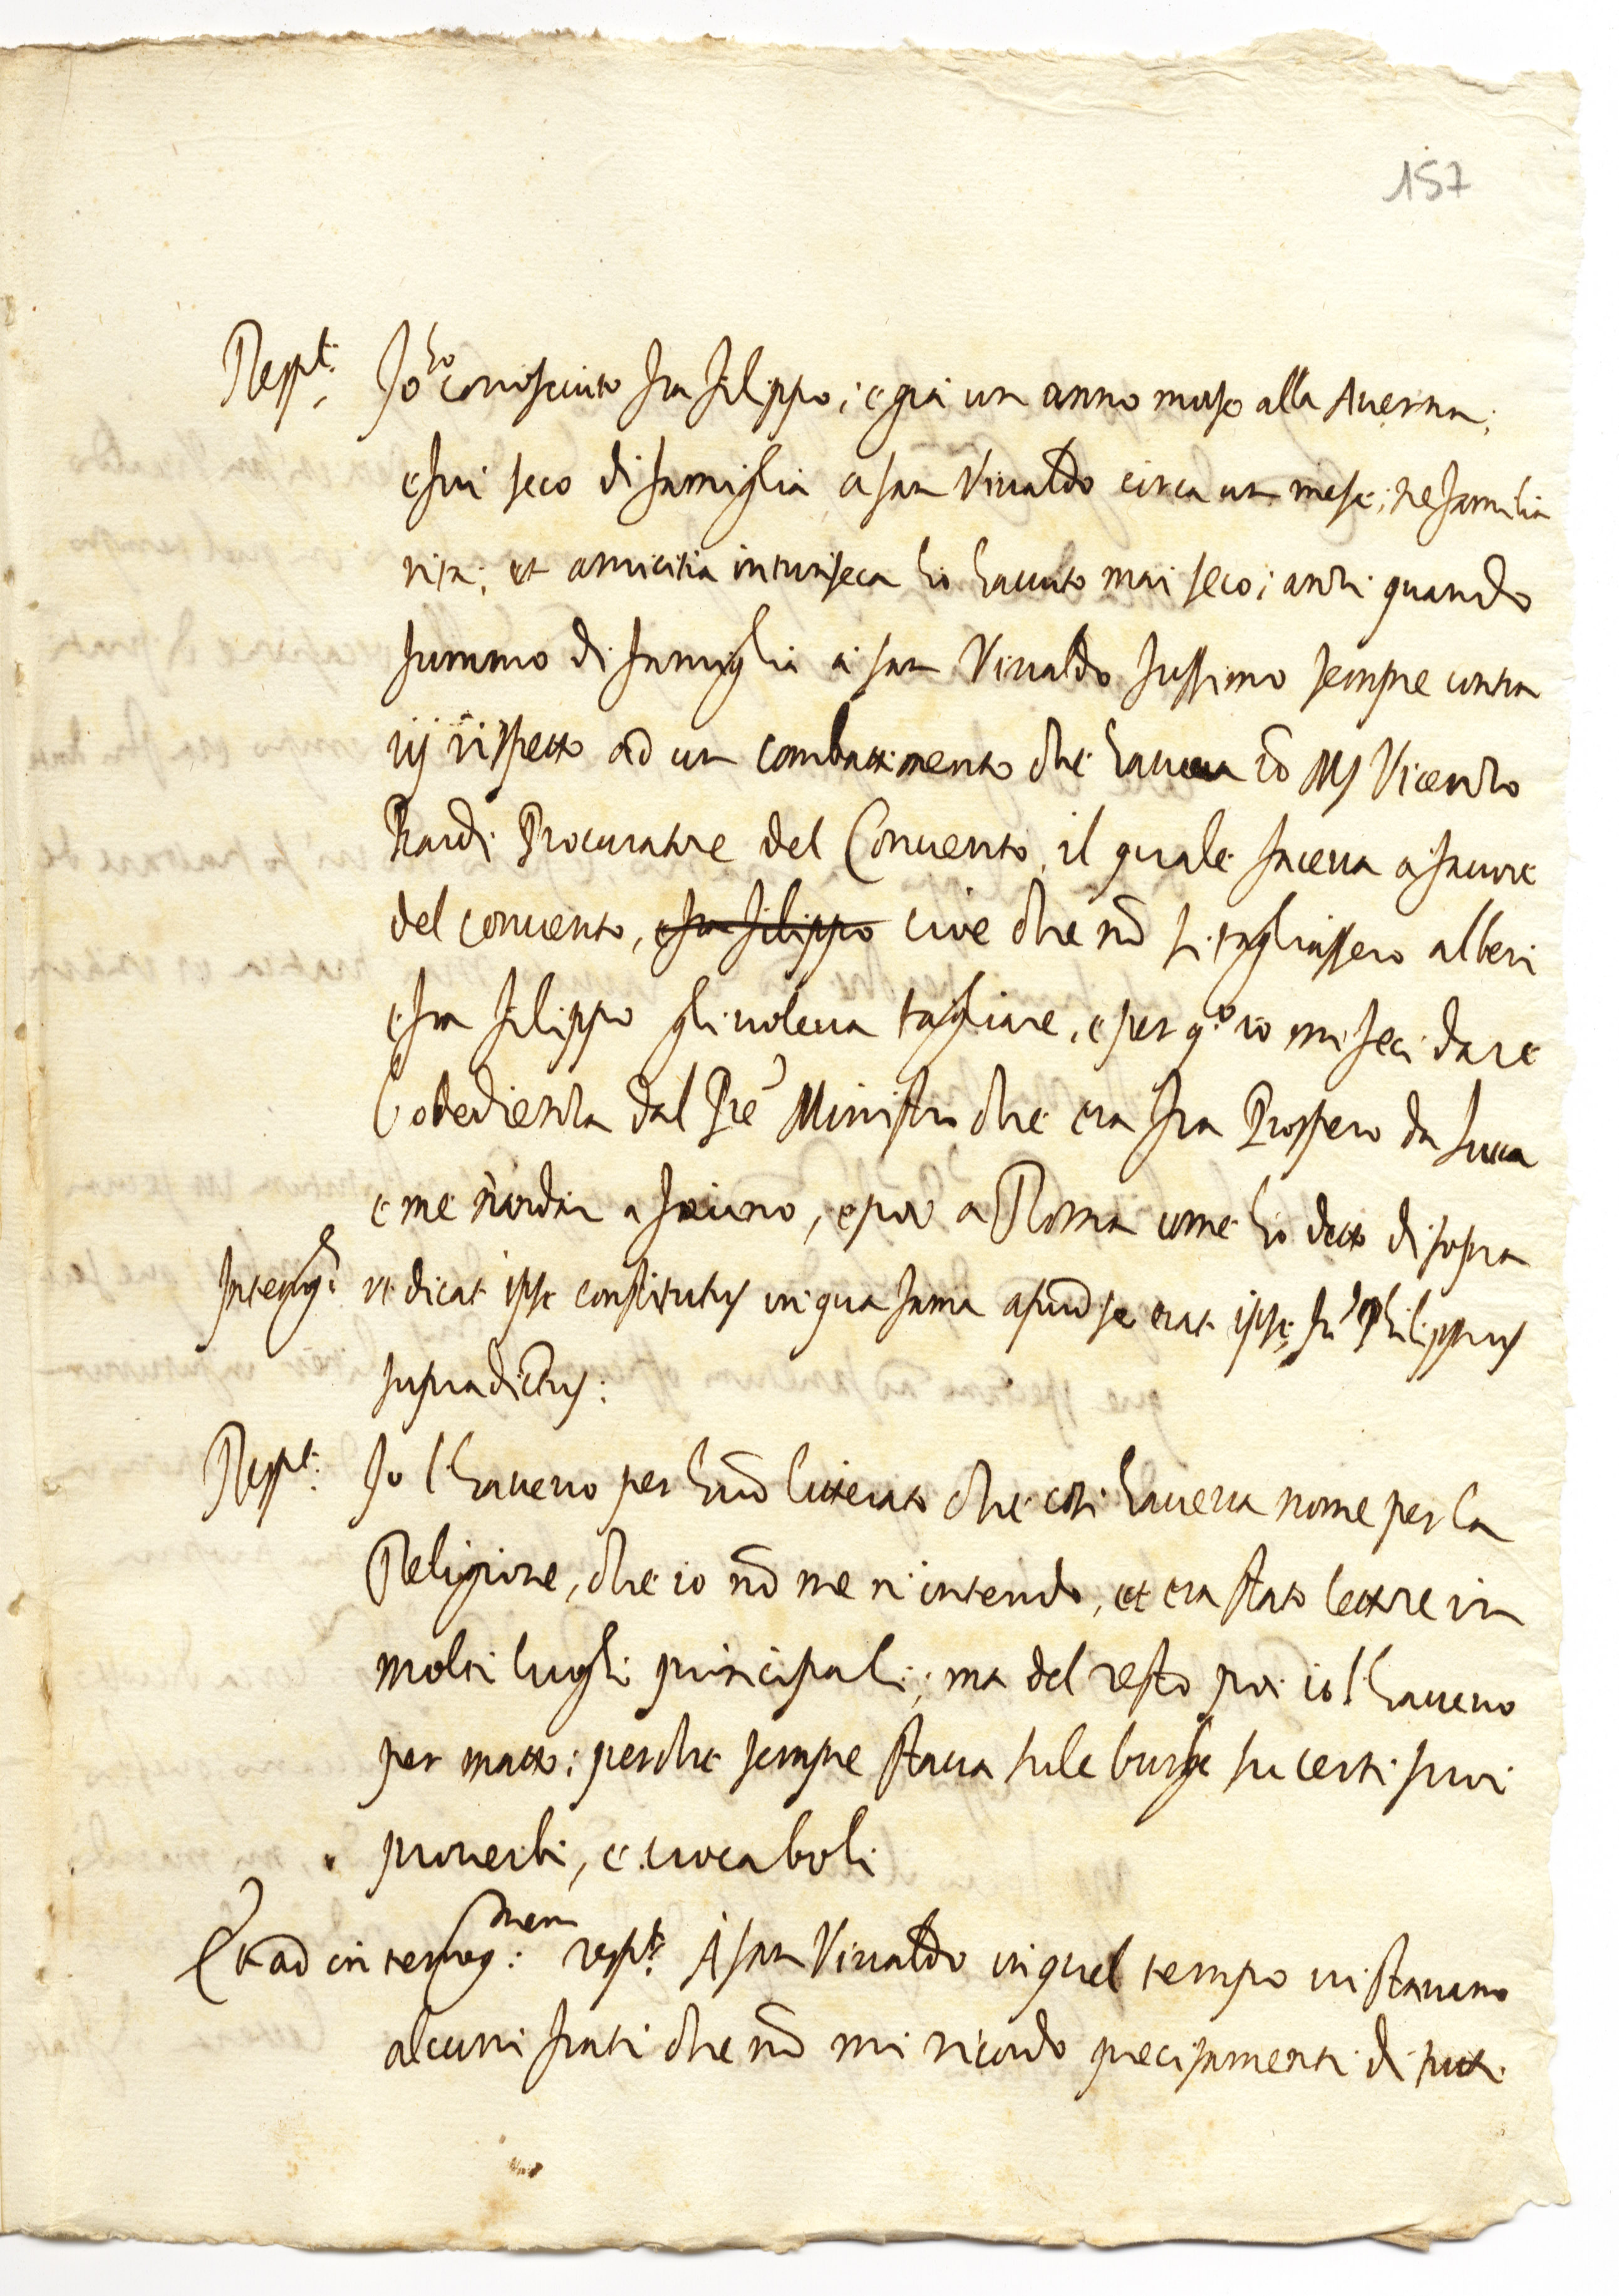 157
Respt: Io ho conosciuto fra filippo; e già un anno muso alla Auerna;
e fui seco di famiglia a san Viualdo circa un mese; ne familia
rita; et amicitia intrinseca hò hauuto mai seco; anzi quando
fummo di famiglia a san Viualdo fussimo sempre contra
rij rispetto ad un combattimento che haueua cō Ms Vicenzo
Bardi Procuratore del Conuento, il quale faceua a fauore
del conuento, e fra filippo cioe che nō si tagliassero alberi
e fra filippo gli uoleua tagliare, e per q.o io mi feci dare
l'obedienza dal Pre Ministro che era fra Prospero da Lucca
e me n'andai a, e poi a Roma come hò detto di sopra
Interrg: vt dicat ipse constitutus in qua fama apud se erat ipse fr Philippus
supradictus:
Respt: Io l'haueuo per huō litterato che cosi haueua nome per la
Religione, che io nō me n'intendo, et era stato lettore in
molti lughi principali; ma del resto poi io l'haueuo
per matto; perche sempre staua su le burle su certi suoi
prouerbi, e uocaboli
Et ad interrog:nem respt: A san Viualdo in quel tempo ui stauano
alcuni frati che nō mi ricordo precisamenti di tutti